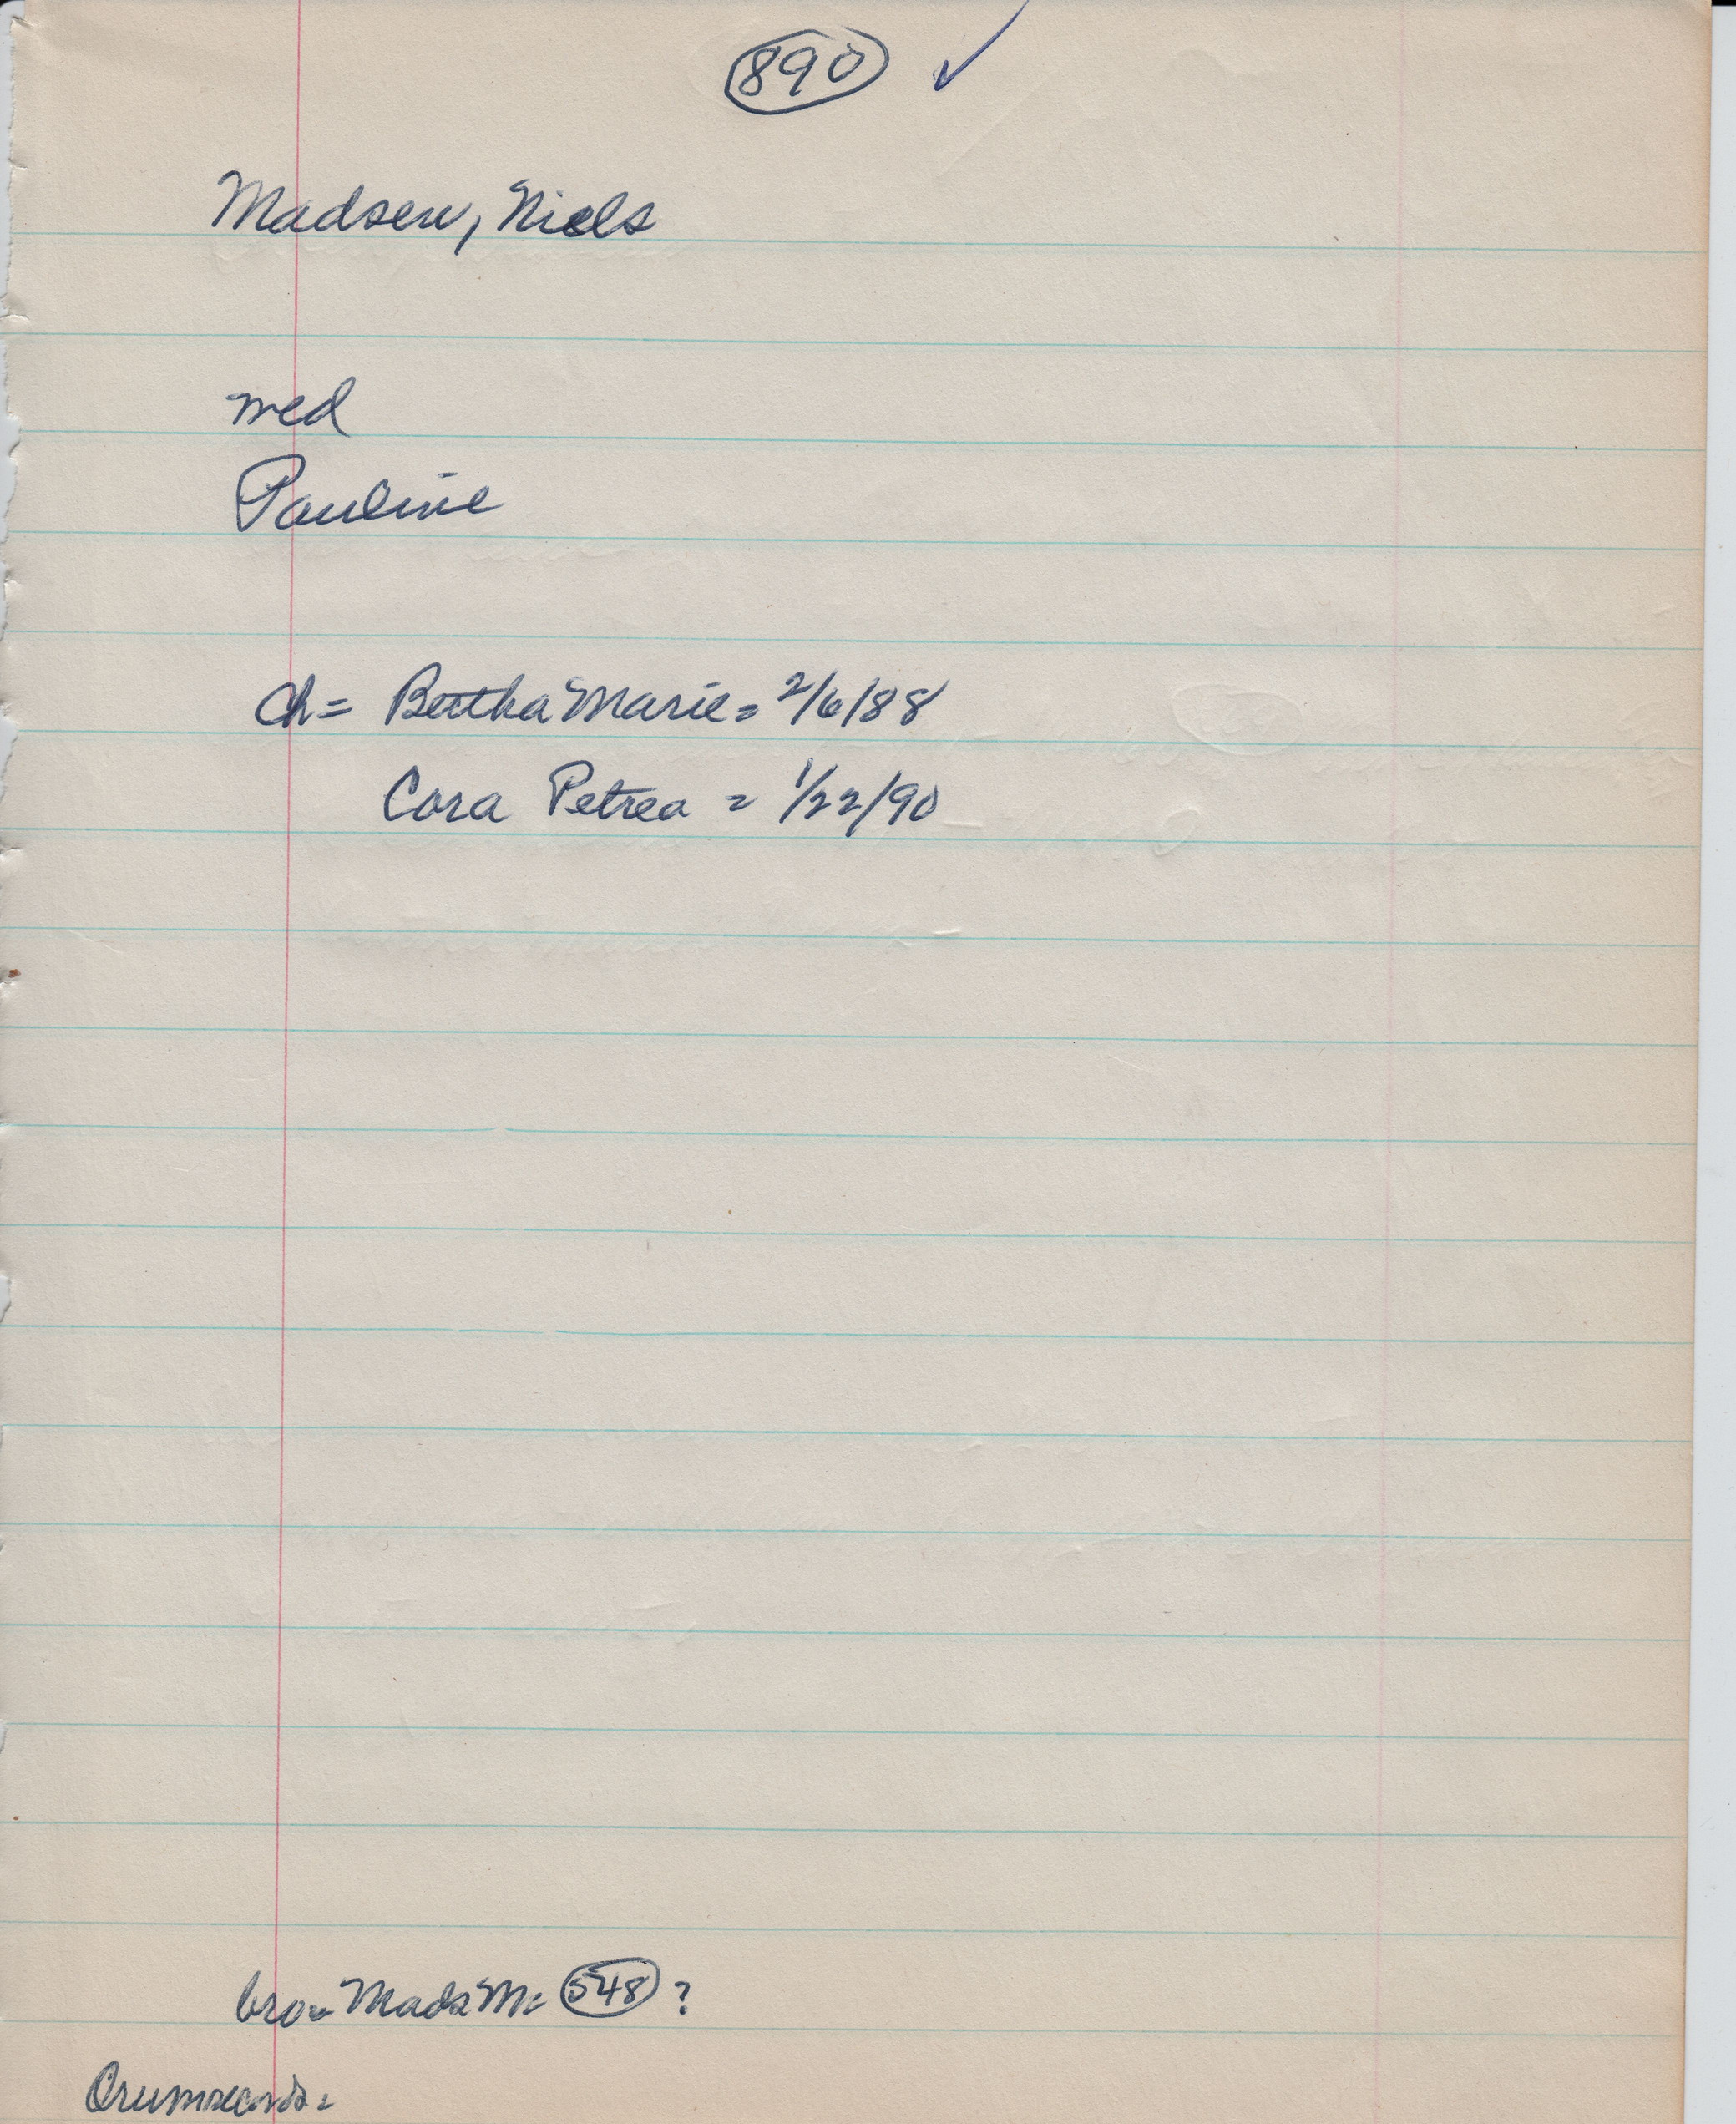 890 ✓
Madsen, Niels
med
Pauline
ch = Bertha Marie = 2/6/88
Cora Petrea = 1/22/90
bro = Mads M = 548 ?
Orum records =